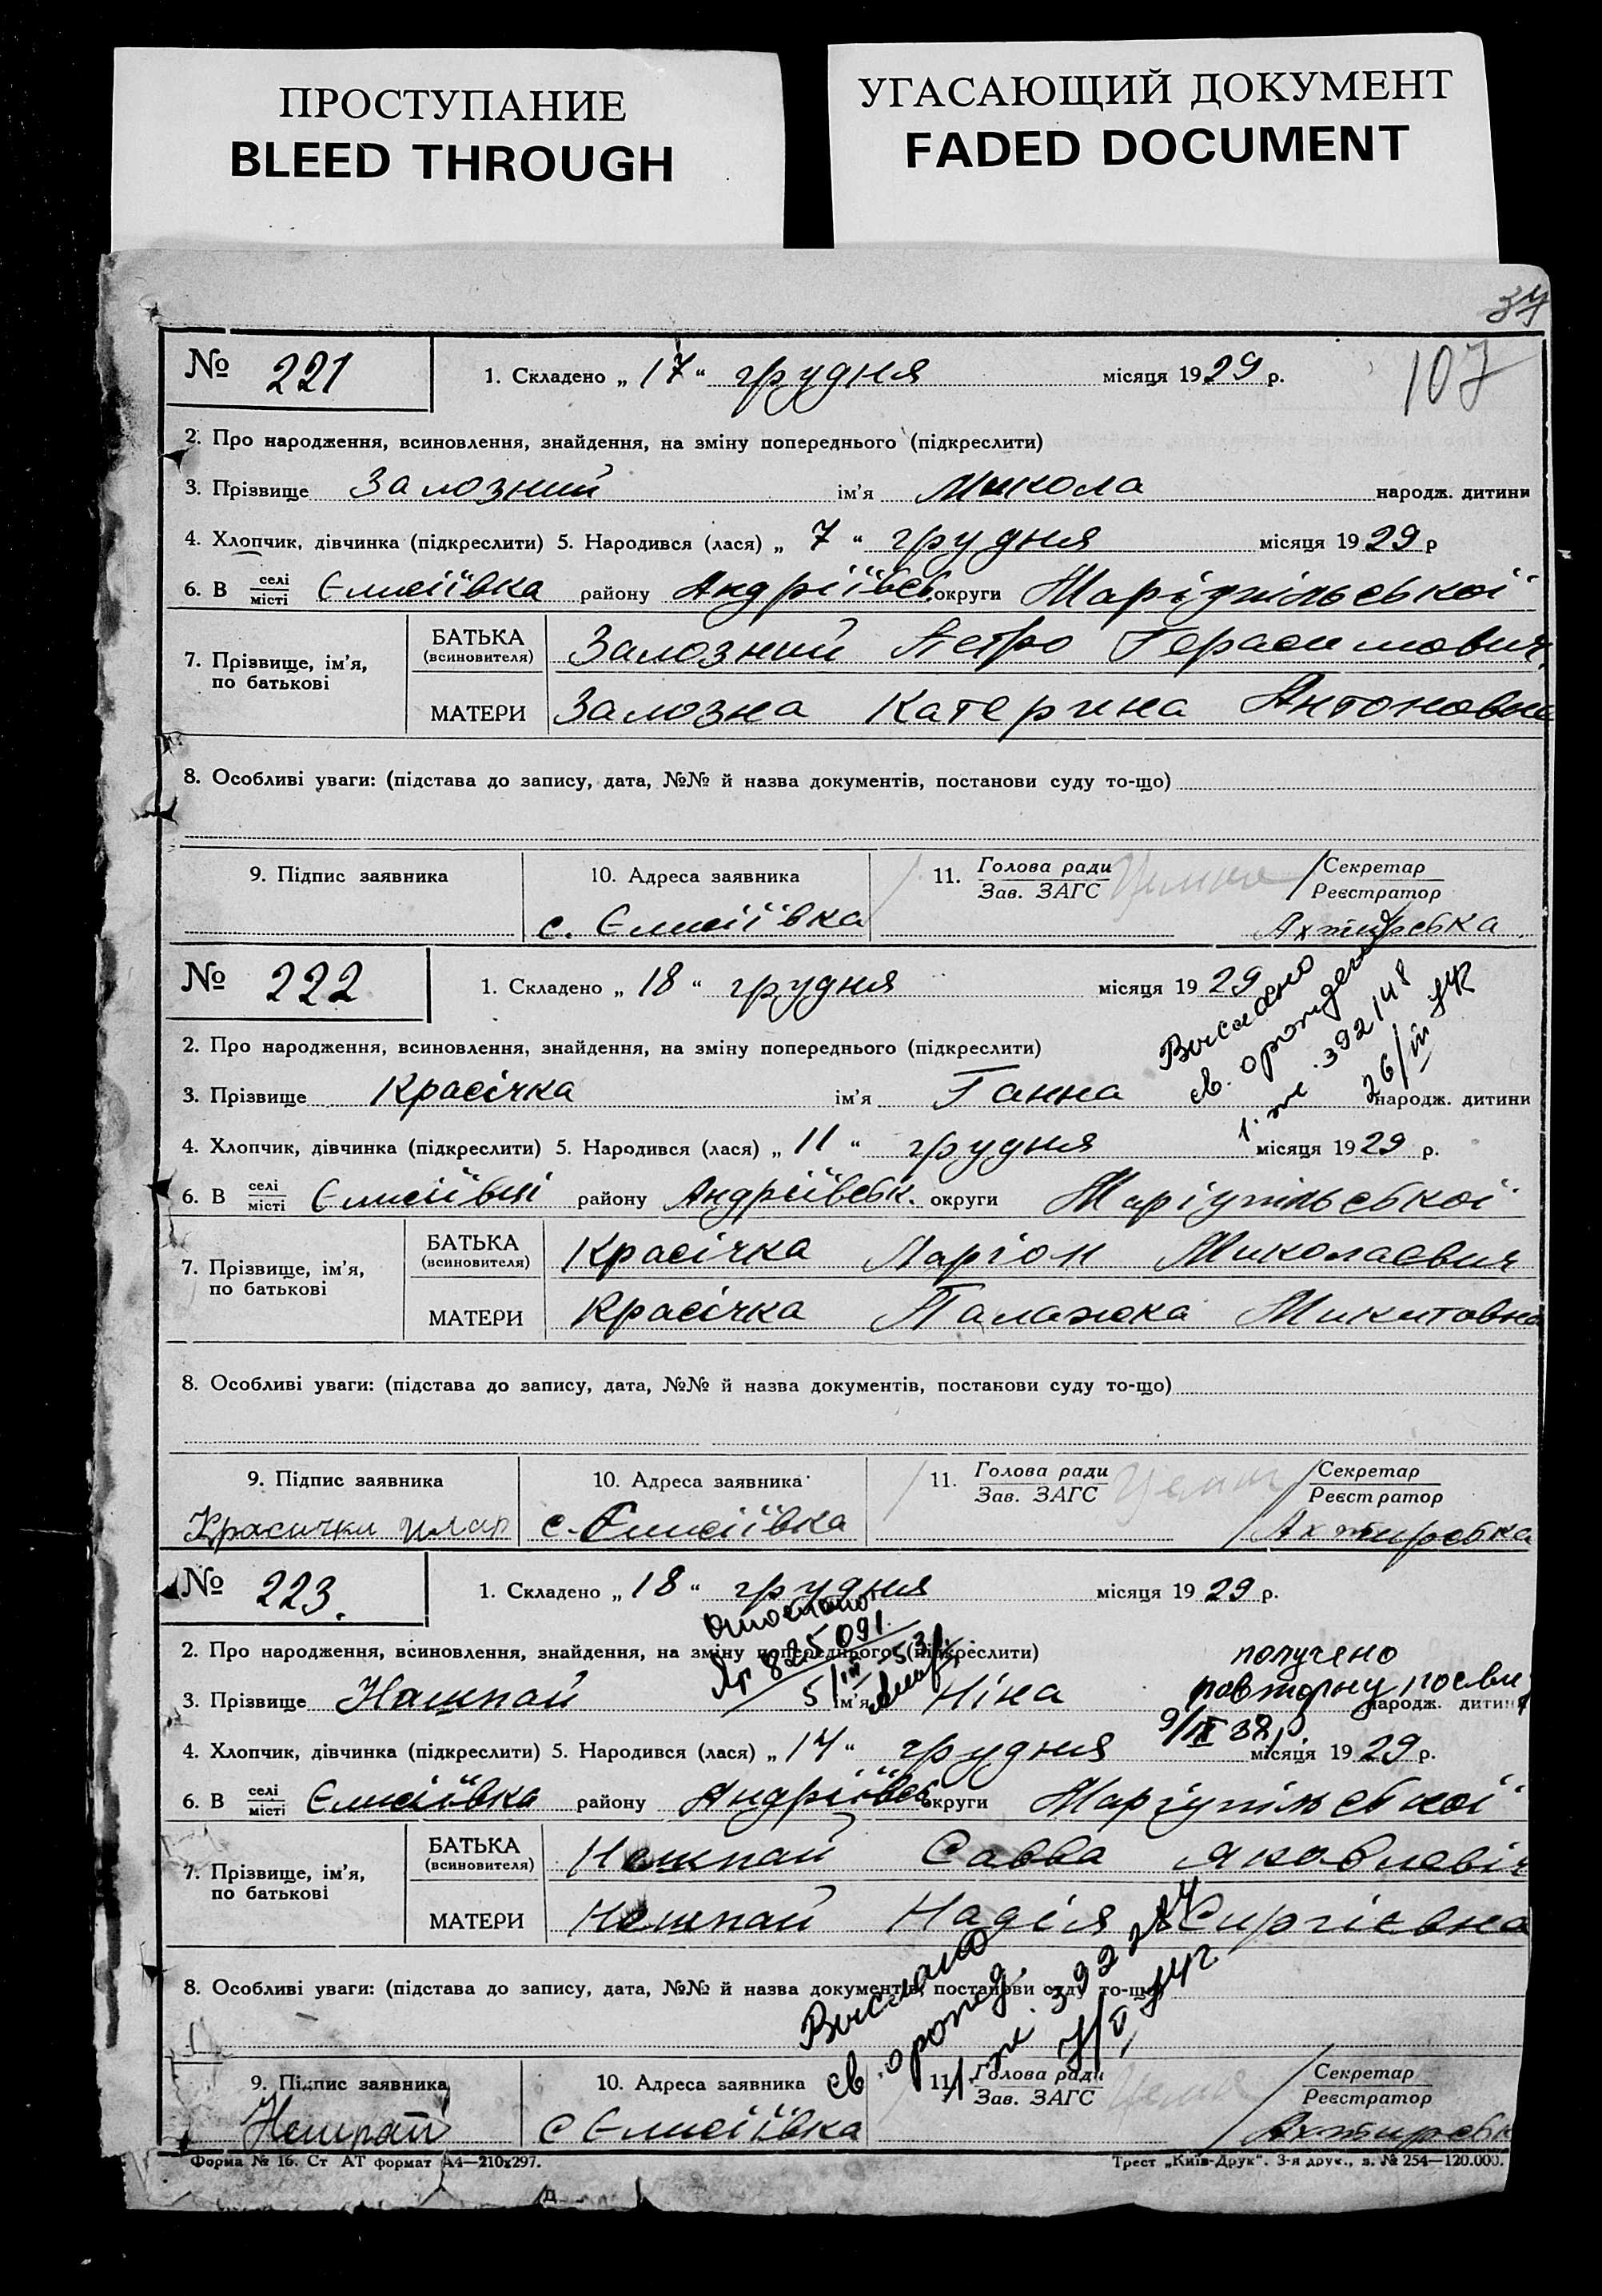 ПРОСТУПАНИЕ
BLEED THROUGH
УГАСАЮЩИЙ ДОКУМЕНТ
FADED DOCUMENT
107
№ 221
1. Складено „ 17 “ грудня місяця 1929 р.
2. Про народження, всиновлення, знайдення, на зміну попереднього (підкреслити)
3. Прізвище Залозний ім'я Микола народж. дитини
4. Хлопчик, дівчинка (підкреслити) 5. Народився (лася) „ 7 “ грудня місяця 1929 р
6. В селі місті Єлисіївка району Андріївськ. округи Маріупільської
7. Прізвище, ім'я, по батькові
БАТЬКА (всиновителя) Залозний Петро Герасимович
МАТЕРИ Залозна Катерина Антоновна
8. Особливі уваги: (підстава до запису, дата, №№ й назва документів, постанови суду то-що)
9. Підпис заявника
10. Адреса заявника
с. Єлисіївка
11. Голова ради Зав. ЗАГС
Секретар Реєстратор
Ахтирська
№ 222
1. Складено „ 18 “ грудня місяця 1929
Висилано
св. о рожден
1. ж. 392148
26/III
2. Про народження, всиновлення, знайдення, на зміну попереднього (підкреслити)
3. Прізвище Красічка ім'я Ганна народж. дитини
4. Хлопчик, дівчинка (підкреслити) 5. Народився (лася) „ 11 “ грудня місяця 1929 р.
6. В селі місті Єлисіївці району Андріївськ. округи Маріупільської
7. Прізвище, ім'я, по батькові
БАТЬКА (всиновителя) Красічка Ларіон Миколаєвич
МАТЕРИ Красічка Палажка Микитовна
8. Особливі уваги: (підстава до запису, дата, №№ й назва документів, постанови суду то-що)
9. Підпис заявника
Красички
10. Адреса заявника
с. Єлисіївка
11. Голова ради Зав. ЗАГС
Секретар Реєстратор
Ахтирська
№ 223.
1. Складено „ 18 “ грудня місяця 1929 р.
825091
2. Про народження, всиновлення, знайдення, на зміну попереднього (підкреслити)
получено
повторну посвид
9/IX 38 р.
3. Прізвище Нешпай ім'я Ніна народж. дитини
4. Хлопчик, дівчинка (підкреслити) 5. Народився (лася) „ 14 “ грудня місяця 1929 р.
6. В селі місті Єлисіївка району Андріївськ округи Маріупільської
7. Прізвище, ім'я, по батькові
БАТЬКА (всиновителя) Нешпай Савва Яковлевіч
МАТЕРИ Нешпай Надія Сиргієвна
8. Особливі уваги: (підстава до запису, дата, №№ й назва документів, постанови суду то-що)
Висилано
св. о рожд.
9. Підпис заявника
Нешпай
10. Адреса заявника
с Єлисіївка
11. Голова ради Зав. ЗАГС
Секретар Реєстратор
Ахтирськ
Форма № 16. Ст АТ формат А4—210х297.
Трест „Київ-Друк“. 3-я друк., з. № 254—120.000.